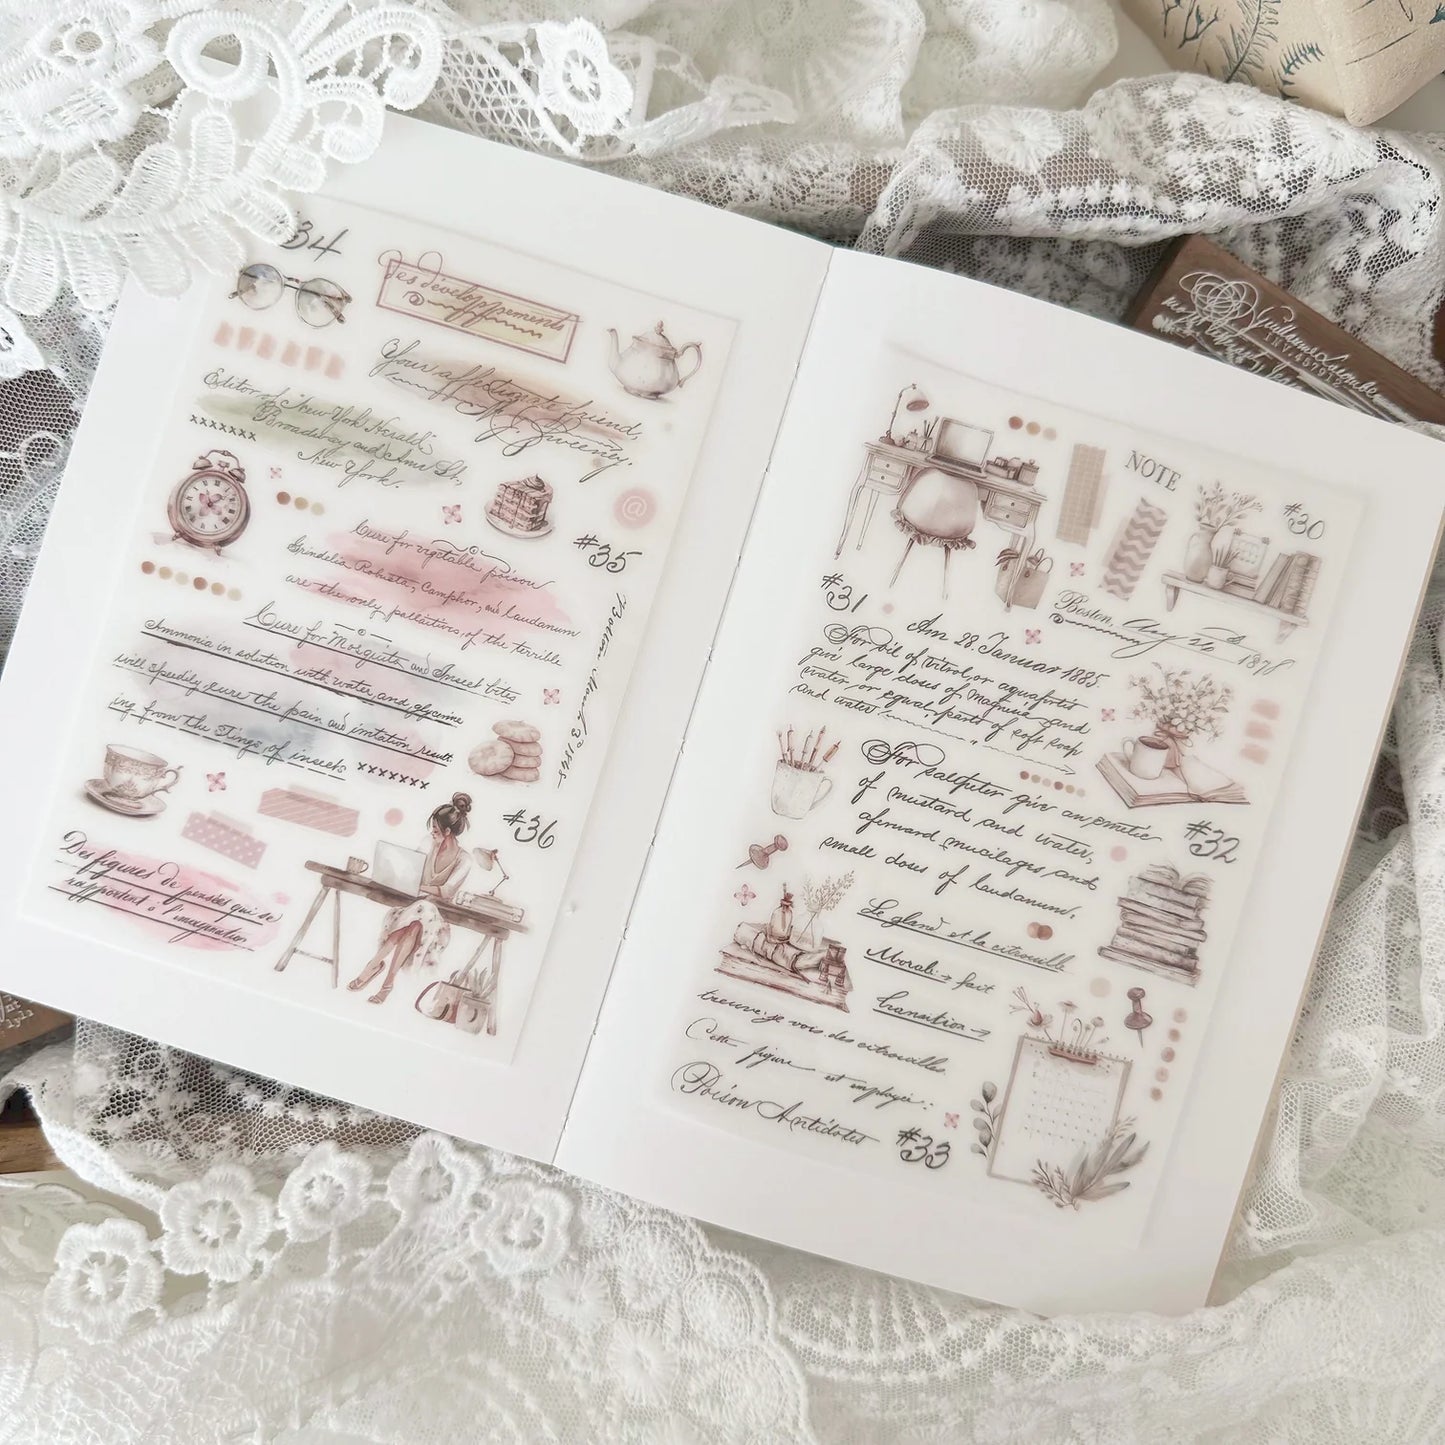 #34
Des développements
Your affectionate friend,
M. Sweeney.
Editor of "New York Herald",
Broadway and Ann St.,
New York.
xxxxxxx
@
#35
Cure for vegetable poison
Grindelia Robusta, Camphor, and laudanum
are the only palliatives of the terrible
Cure for Mosquito and Insect bites
Ammonia in solution with water and glycerine
will speedily cure the pain and irritation result
ing from the stings of insects
xxxxxxx
1845
#36
Des figures de pensées qui se
rapportent à l'imagination
NOTE
#30
Boston, May 20 1878
#31
Am 28. Januar 1885.
For oil of vitrol, or aquafortis
give large doses of magnesia and
water or equal parts of soft soap
and water
For saltpeter give an emetic
of mustard and water,
afterward mucilages and
small doses of laudanum.
#32
Le gland et la citrouille
Morale → fait
transition →
treuve. je vois des citrouilles.
Cette figure est employée:
Poison Antidotes
#33